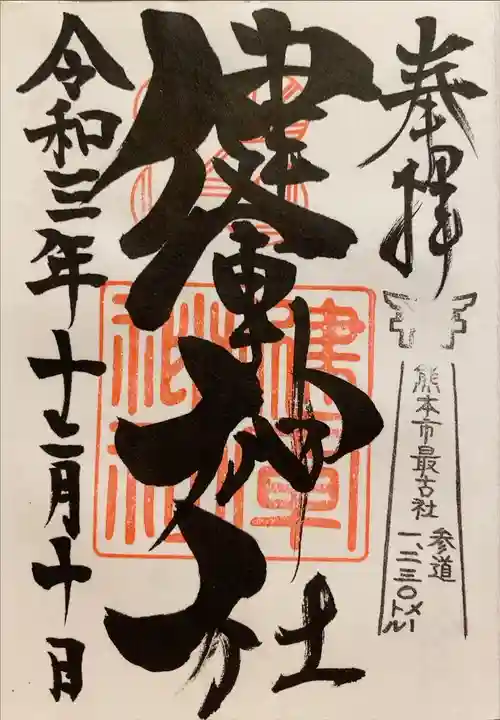 奉拝
熊本市最古社
参道
一、二三〇メートル
健軍神社
健軍神社
令和三年十二月十日